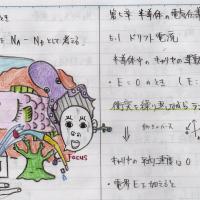 とき
Nᴀ - Nᴅ として考える。
FOCUS
第七章 半導体の電気伝導
5.1 ドリフト電流
半導体中のキャリヤの運動
・E = 0 のとき (E =
衝突を繰り返しながらラン
キャリヤの平均速度は0
・電界Eを加えると